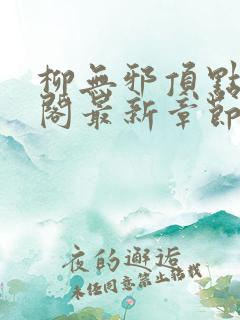 柳無邪頂點
閣最新章節
夜的邂逅
未经同意禁止转载